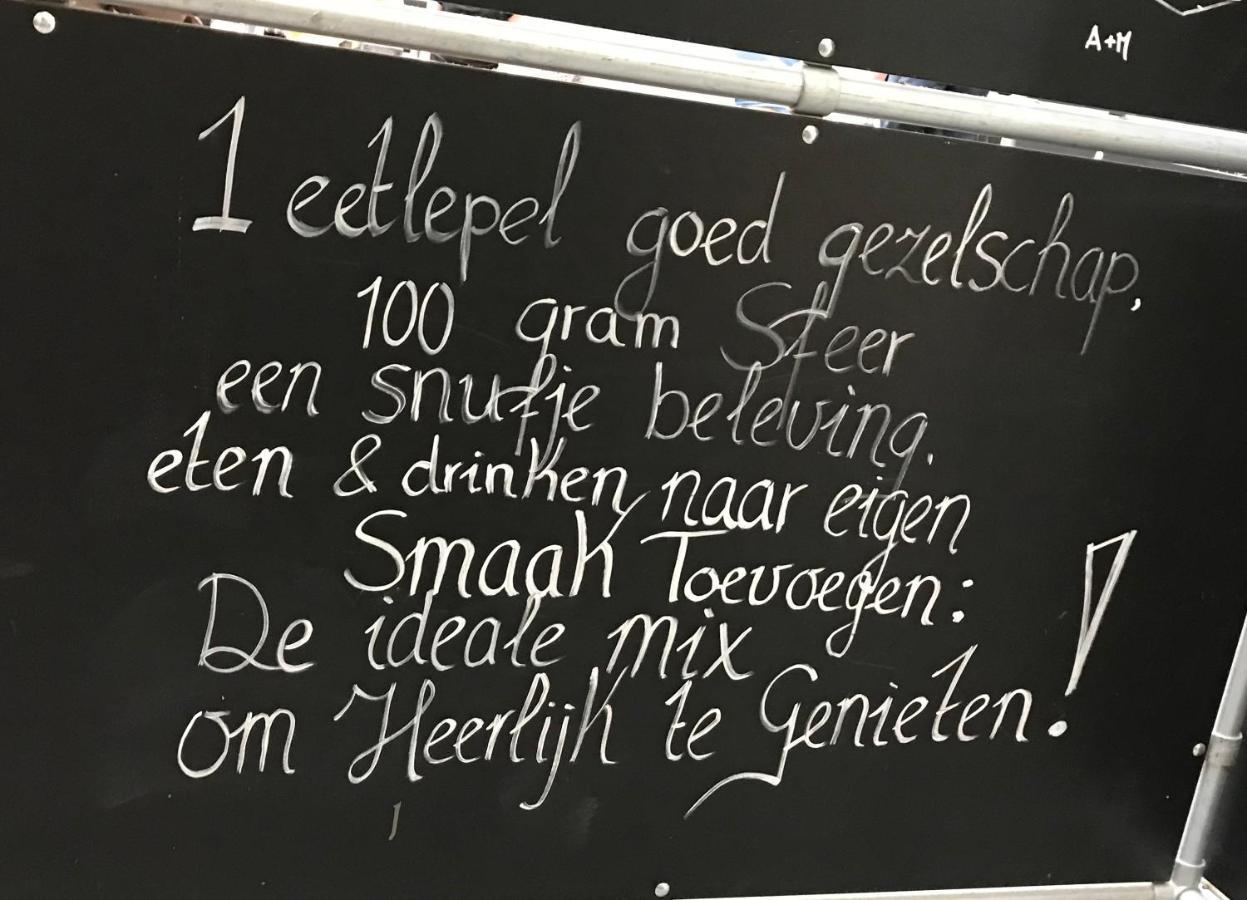 A+M
1 eetlepel goed gezelschap,
100 gram Sfeer
een snufje beleving.
eten & drinken naar eigen
Smaak Toevoegen:
De ideale mix
om Heerlijk te Genieten!